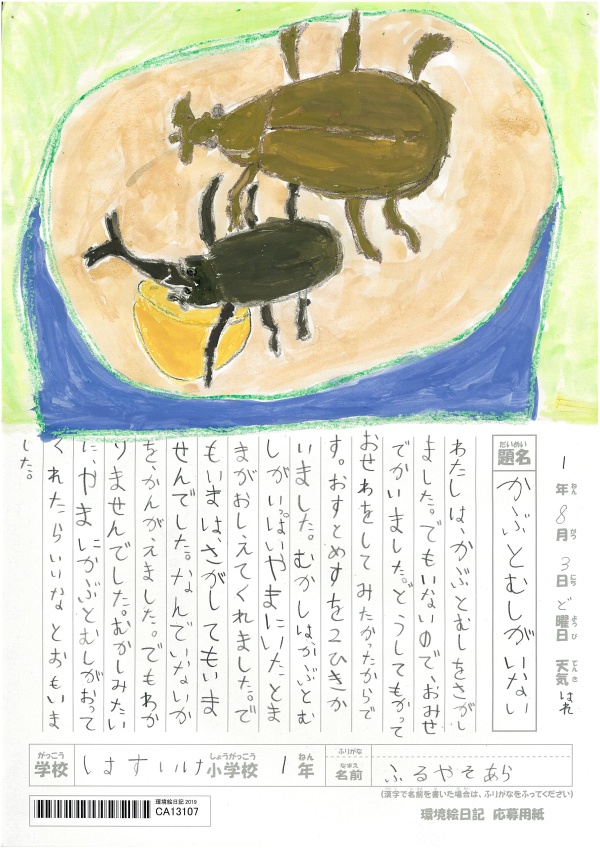 1年ねん 8月がつ 3日にち ど曜日ようび 天気てんき はれ
題名だいめい
かぶとむしがいない
わたしは、かぶとむしをさがし
ました。でもいないので、おみせ
でかいました。どうしてもかって
おせわをしてみたかったからで
す。おすとめすを2ひきか
いました。むかしはかぶとむ
しがいっぱいやまにいたとま
まがおしえてくれました。で
もいまは、さがしてもいま
せんでした。なんでいないか
を、かんがえました。でもわか
りませんでした。むかしみたい
に、やまにかぶとむしがおって
くれたらいいなとおもいま
した。
学校がっこう はすいけ小学校しょうがっこう 1年ねん
ふりがな
名前なまえ ふるやそあら
(漢字で名前を書いた場合は、ふりがなをふってください)
環境絵日記 2019
CA13107
環境絵日記 応募用紙